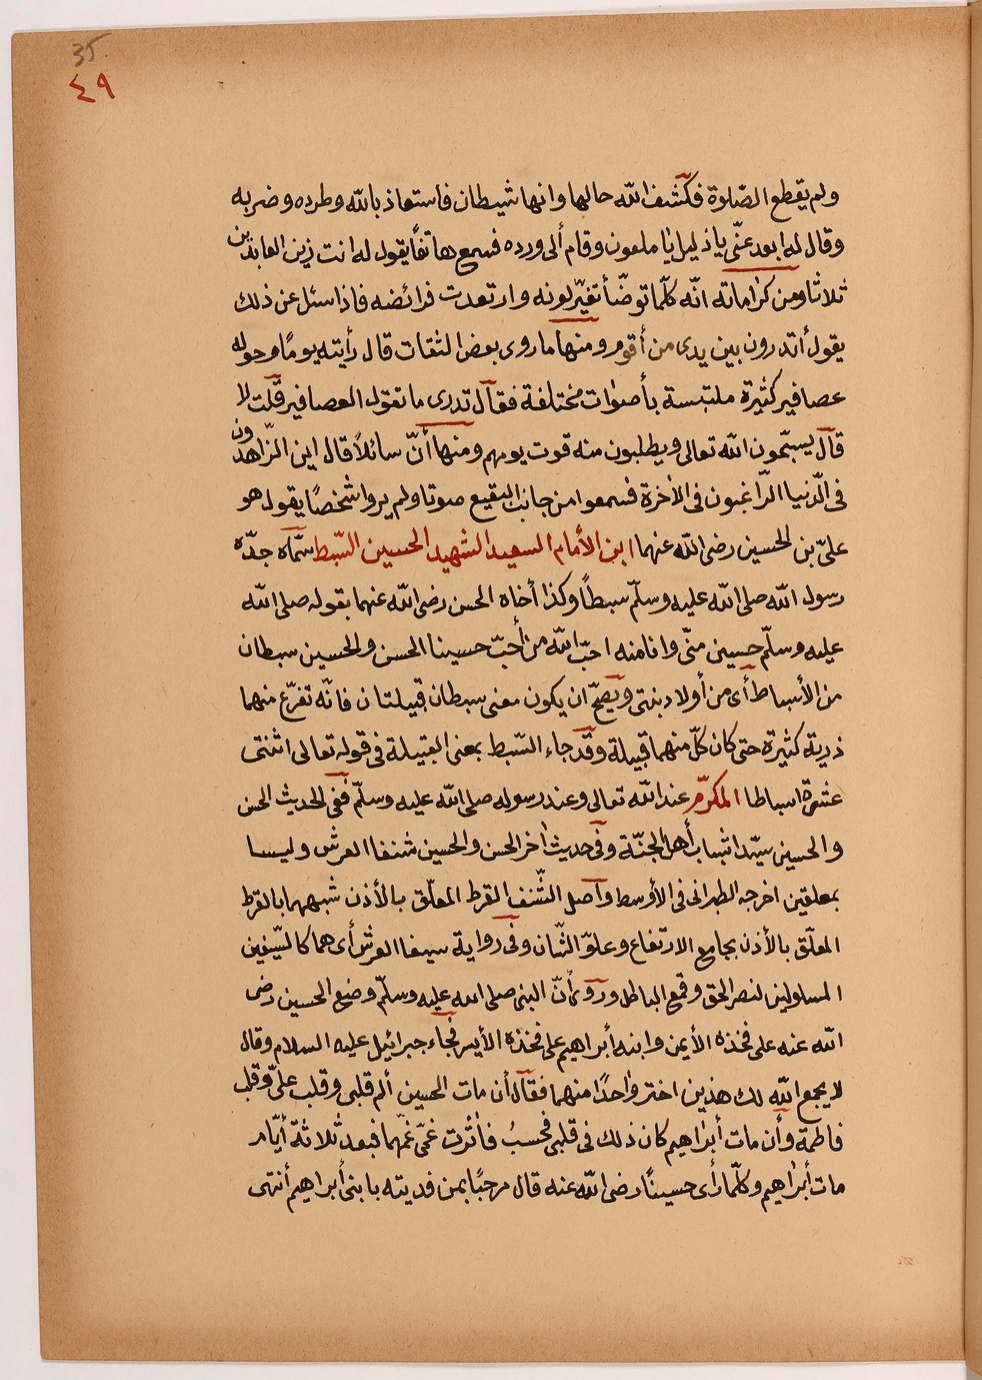 35
٤٩
ولم يقطع الصّلوة فكشف اللّه حالها وانها شيطان فاستعاذ باللّه وطرده وضربه
وقال له ابعد عنّى ياذليل يا ملعون وقام ألى ورده فسمع هاتفًا يقول له انت زين العابدين
ثلاثا ومن كراماته انّه كلّما توضّأ تغيّر لونه وارتعدت فرائضه فاذا سئل عن ذلك
يقول أتدرون بين يدى من أقوم ومنها ما روى بعض الثقات قال رأيته يومًا وحوله
عصافير كثيرة ملتبسة بأصوات مختلفة فقال تدرى ما تقول العصافير قلت لا
قال يسبّحون اللّه تعالى ويطلبون منه قوت يومهم ومنها أنّ سائلاً قال اين الزّاهدون
فى الدّنيا الرّاغبون فى الأخرة فسمعوا من جانب البقيع صوتا ولم يروا شخصًا يقول هو
علىّ بن الحسين رضى اللّه عنهما ابن الأمام السعيد الشهيد الحسين السّبط سمّاه جدّه
رسول اللّه صلى اللّه عليه وسلّم سبطًا وكذا أخاه الحسن رضى اللّه عنهما بقوله صلى اللّه
عليه وسلّم حسين منّى وانا منه احبّ اللّه من أحبّ حسينا الحسن والحسين سبطان
من الأسباط أى من أولاد بنتى ويصحّ ان يكون معنى سبطان قبيلتان فانّه تفرّع منهما
ذرية كثيرة حتى كان كلّ منهما قبيلة وقد جاء السّبط بمعنى القبيلة فى قوله تعالى اثنتى
عشرة اسباطا المكرّم عند اللّه تعالى وعند رسوله صلى اللّه عليه وسلّم ففى الحديث الحسن
والحسين سيّدا شباب أهل الجنّة وفى حديث أخر الحسن والحسين شنفا العرش وليسا
بمعلقين اخرجه الطبرانى فى الأوسط وأصل الشّنف القرط المعلّق بالأذن شبههما بالقرط
المعلّق بالأذن بجامع الارتفاع وعلوّ الشّان وفى رواية سيفا العرش أى هما كالسّيفين
المسلولين لنصر الحق وقمع الباطل وروى أنّ النبى صلى الله عليه وسلّم وضع الحسين رضى
اللّه عنه على فخذه الأيمن وابنه أبراهيم على فخذه الأيسر فجاء جبرائيل عليه السلام وقال
لا يجمع اللّه لك هذين اختر واحدًا منهما فقال أن مات الحسين ألم قلبى وقلب علىّ وقلب
فاطمة وأن مات أبراهيم كان ذلك فى قلبى فحسبُ فأثرت غمّى غمّهما فبعد ثلاثة أيّام
مات أبراهيم وكلّما رأى حسينًا رضى اللّه عنه قال مرحبًا بمن فديته بابنى أبراهيم أنتهى